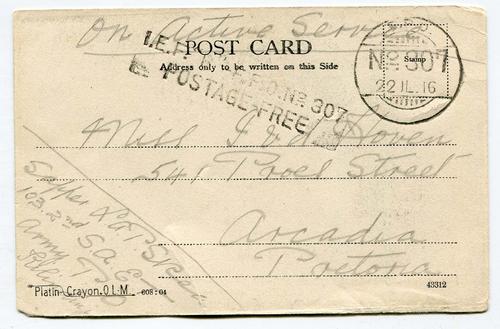 On Active Service
POST CARD
Address only to be written on this Side
I.E.F. No. 307
POSTAGE FREE
No 307
Stamp
22 JL.16
Miss
541 Proes Street
Arcadia
Pretoria
Sapper
103 2nd S.A.E.
Army
Platin-Crayon.O.L.M. 608:04
43312